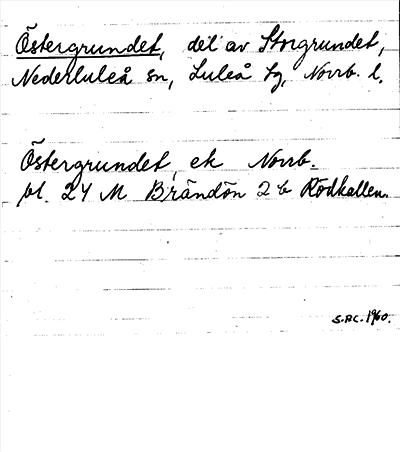 Östergrundet, del av Storgrundet,
Nederluleå sn, Luleå tg, Norrb. l.
Östergrundet ek Norrb.
bl. 24 M Brändön 2 b Rödkallen.
S.AC. 1960.